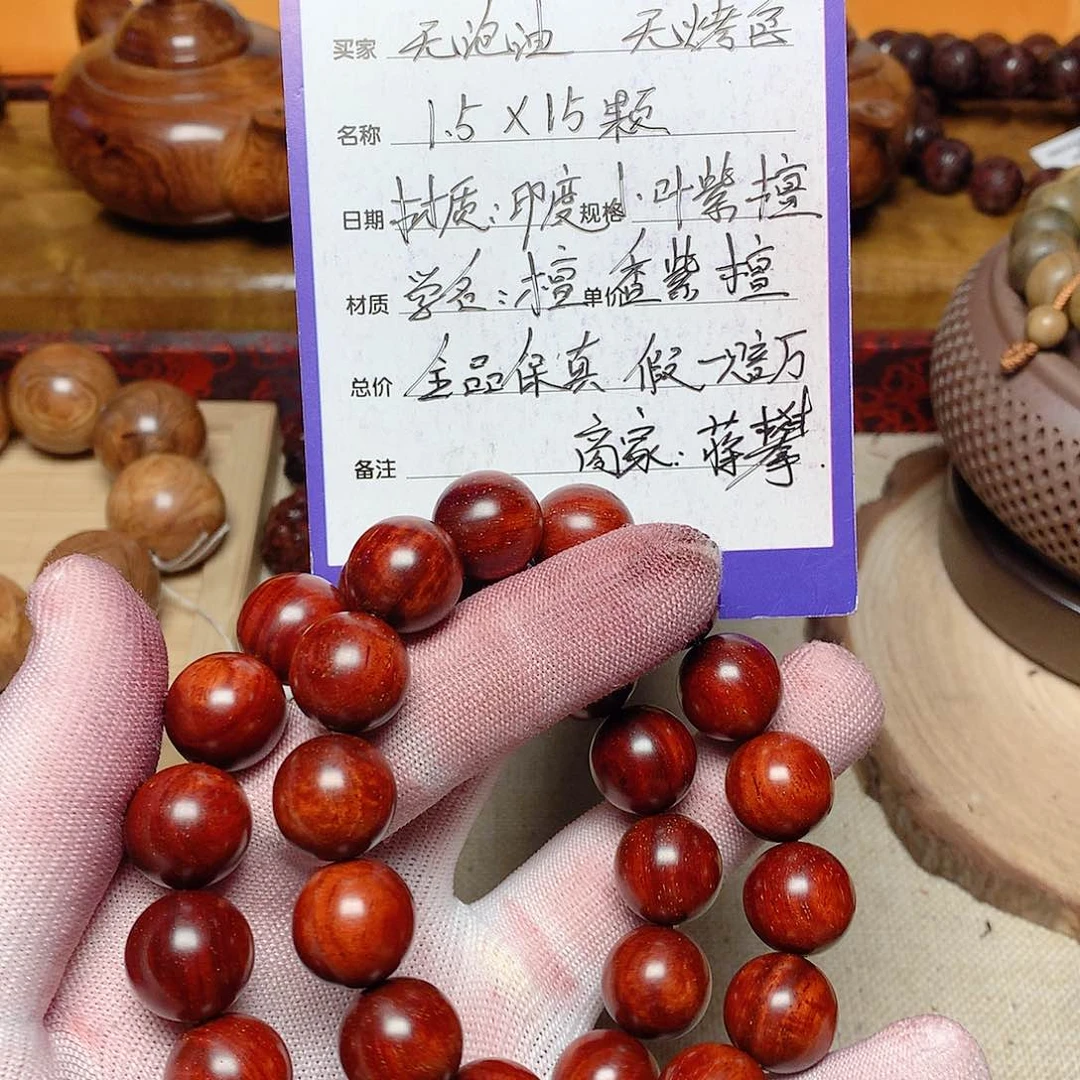 买家 无泡油 无烤色
名称 1.5×15颗
日期 材质:印度规格小叶紫檀
材质 学名:檀单价香紫檀
总价 全品保真 假一赔万
备注 商家:蒋攀